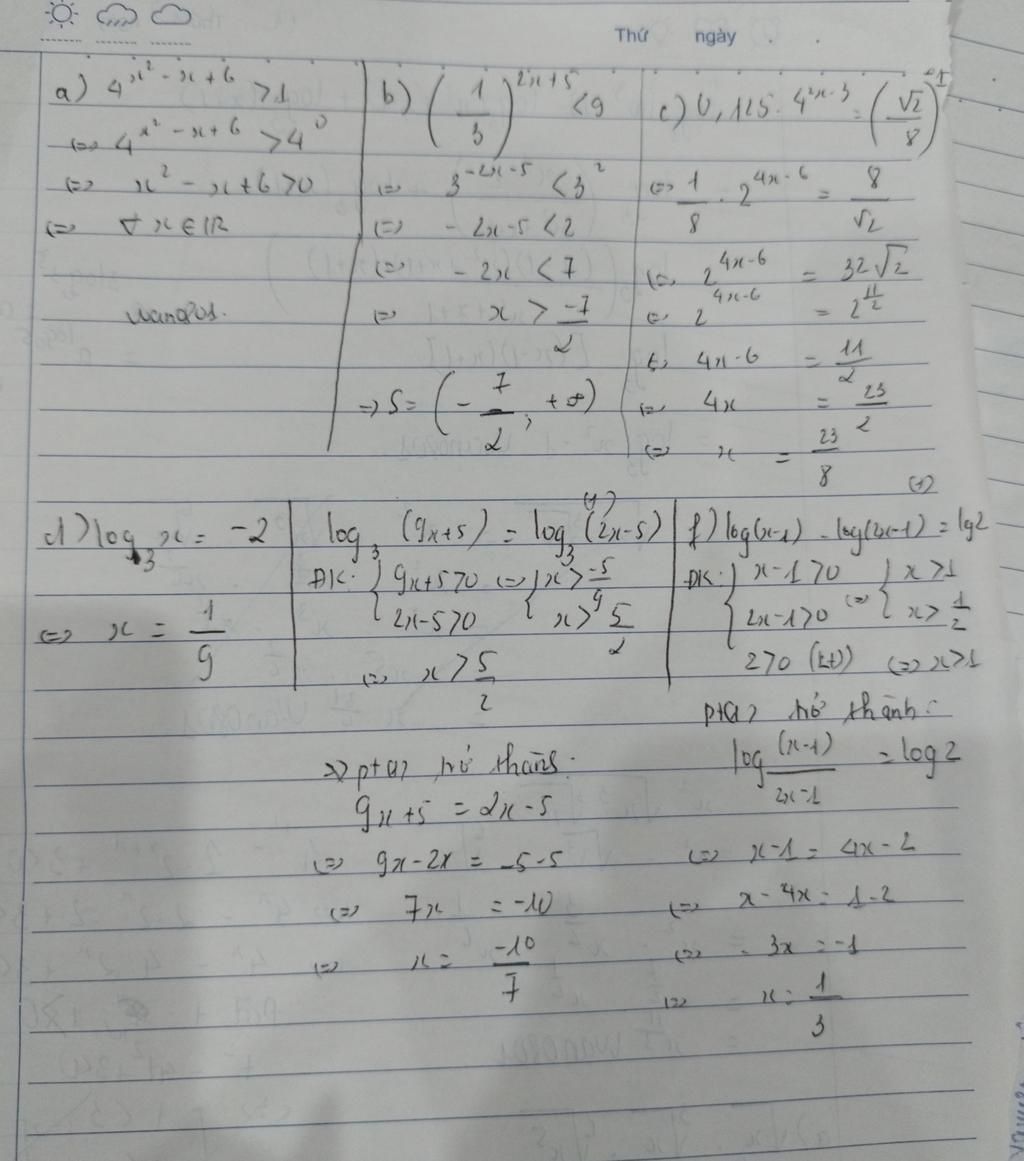 Thứ ngày . .
a) 4^{x² - x + 6} > 1
⇔ 4^{x² - x + 6} > 4^0
⇔ x² - x + 6 > 0
⇔ ∀ x ∈ ℝ
b) (1/3)^{2x+5} < 9
⇔ 3^{-2x-5} < 3²
⇔ -2x-5 < 2
⇔ -2x < 7
⇔ x > -7/2
⇒ S = (-7/2; +∞)
c) 0,125 . 4^{2x-3} = (√2/8)^{-1}
⇔ 1/8 . 2^{4x-6} = 8/√2
⇔ 2^{4x-6} = 32√2
⇔ 2^{4x-6} = 2^{11/2}
⇔ 4x-6 = 11/2
⇔ 4x = 23/2
⇔ x = 23/8
d) log₃ x = -2
⇔ x = 1/9
(1)
log₃ (9x+5) = log₃ (2x-5)
ĐK: { 9x+5>0 ⇔ { x > -5/9
2x-5>0 x > 5/2
⇔ x > 5/2
⇒ pt(1) trở thành:
9x+5 = 2x-5
⇔ 9x-2x = -5-5
⇔ 7x = -10
⇔ x = -10/7
(1)
f) log(x-1) - log(2x-1) = lg2
ĐK: { x-1>0 ⇔ { x>1
2x-1>0 x > 1/2
2>0 (lđ) ⇔ x>1
pt(1) trở thành:
log (x-1)/2x-1 = log2
⇔ x-1 = 4x-2
⇔ x-4x = 1-2
⇔ -3x = -1
⇔ x = 1/3